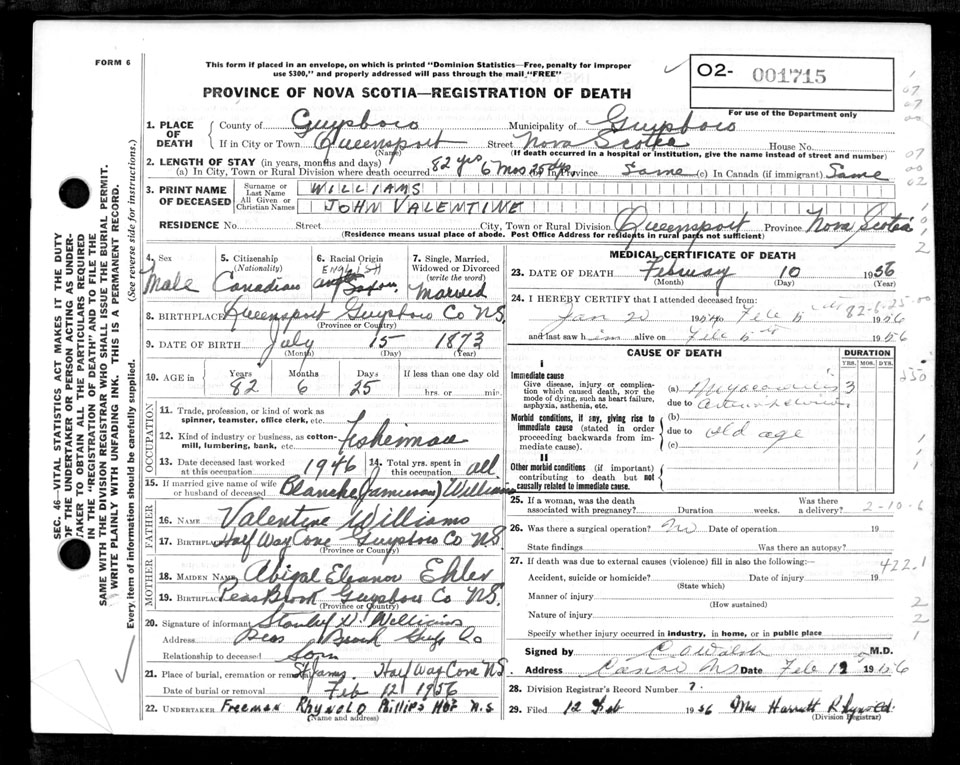 FORM 6
This form if placed in an envelope, on which is printed "Dominion Statistics—Free, penalty for improper
use $300," and properly addressed will pass through the mail "FREE"
PROVINCE OF NOVA SCOTIA—REGISTRATION OF DEATH
O2- 001715
For use of the Department only
1. PLACE OF DEATH
County of Guysboro Municipality of Guysboro
If in City or Town Queensport Street Nova Scotia House No.
(Name) (If death occurred in a hospital or institution, give the name instead of street and number)
2. LENGTH OF STAY (in years, months and days)
(a) In City, Town or Rural Division where death occurred 82 yrs 6 Mos 25 dys (b) In Province Same (c) In Canada (if immigrant) Same
3. PRINT NAME OF DECEASED
Surname or Last Name WILLIAMS
All Given or Christian Names JOHN VALENTINE
RESIDENCE No. Street City, Town or Rural Division Queensport Province Nova Scotia
(Residence means usual place of abode. Post Office Address for residents in rural parts not sufficient)
4. Sex Male
5. Citizenship (Nationality) Canadian
6. Racial Origin ENGLISH
7. Single, Married, Widowed or Divorced (write the word) Married
8. BIRTHPLACE Queensport Guysboro Co N.S.
(Province or Country)
9. DATE OF BIRTH July 15 1873
(Month) (Day) (Year)
10. AGE in Years 82 Months 6 Days 25 If less than one day old
hrs. or min.
OCCUPATION
11. Trade, profession, or kind of work as
spinner, teamster, office clerk, etc.
12. Kind of industry or business, as cotton-
mill, lumbering, bank, etc. Fisherman
13. Date deceased last worked at this occupation 1946 14. Total yrs. spent in this occupation all
15. If married give name of wife or husband of deceased Blanche (Jamieson) Williams
FATHER
16. NAME Valentine Williams
17. BIRTHPLACE Half Way Cove Guysboro Co N.S.
(Province or Country)
MOTHER
18. MAIDEN NAME Abigal Eleanor Ehler
19. BIRTHPLACE Peas Brook Guysboro Co N.S.
(Province or Country)
20. Signature of informant Stanley W. Williams
Address Peas Brook Guys Co
Relationship to deceased Son
21. Place of burial, cremation or removal St James Half Way Cove N S
Date of burial or removal Feb 12 1956
22. UNDERTAKER Freeman Rhynold Phillips Hbr N.S
(Name and address)
MEDICAL CERTIFICATE OF DEATH
23. DATE OF DEATH February 10 1956
(Month) (Day) (Year)
24. I HEREBY CERTIFY that I attended deceased from:
Jan 20 1956 to Feb 5 1956
82-6-25-00
and last saw him alive on Feb 5 1956
CAUSE OF DEATH
DURATION
YRS. MOS. DYS.
I
Immediate cause
Give disease, injury or complica-
tion which caused death, NOT the
mode of dying, such as heart failure,
asphyxia, asthenia, etc.
(a) Myocarditis 3
due to
Morbid conditions, if any, giving rise to
immediate cause (stated in order
proceeding backwards from im-
mediate cause).
(b)
due to old age
(c)
II
Other morbid conditions (if important)
contributing to death but not
causally related to immediate cause.
25. If a woman, was the death Was there
associated with pregnancy? Duration weeks. a delivery?
2-10-6
26. Was there a surgical operation? No Date of operation 19
State findings Was there an autopsy?
27. If death was due to external causes (violence) fill in also the following:—
422.1
Accident, suicide or homicide? Date of injury 19
(State which)
Manner of injury
(How sustained)
Nature of injury
Specify whether injury occurred in industry, in home, or in public place
Signed by C O Walsh M.D.
Address Canso N S Date Feb 12 1956
28. Division Registrar's Record Number 7.
29. Filed 12 Feb 1956 Mrs Harriett Rhynold
(Division Registrar)
SEC. 46—VITAL STATISTICS ACT MAKES IT THE DUTY
OF THE UNDERTAKER OR PERSON ACTING AS UNDER-
TAKER TO OBTAIN ALL THE PARTICULARS REQUIRED
IN THE "REGISTRATION OF DEATH" AND TO FILE THE
SAME WITH THE DIVISION REGISTRAR WHO SHALL ISSUE THE BURIAL PERMIT.
WRITE PLAINLY WITH UNFADING INK. THIS IS A PERMANENT RECORD.
Every item of information should be carefully supplied. (See reverse side for instructions.)